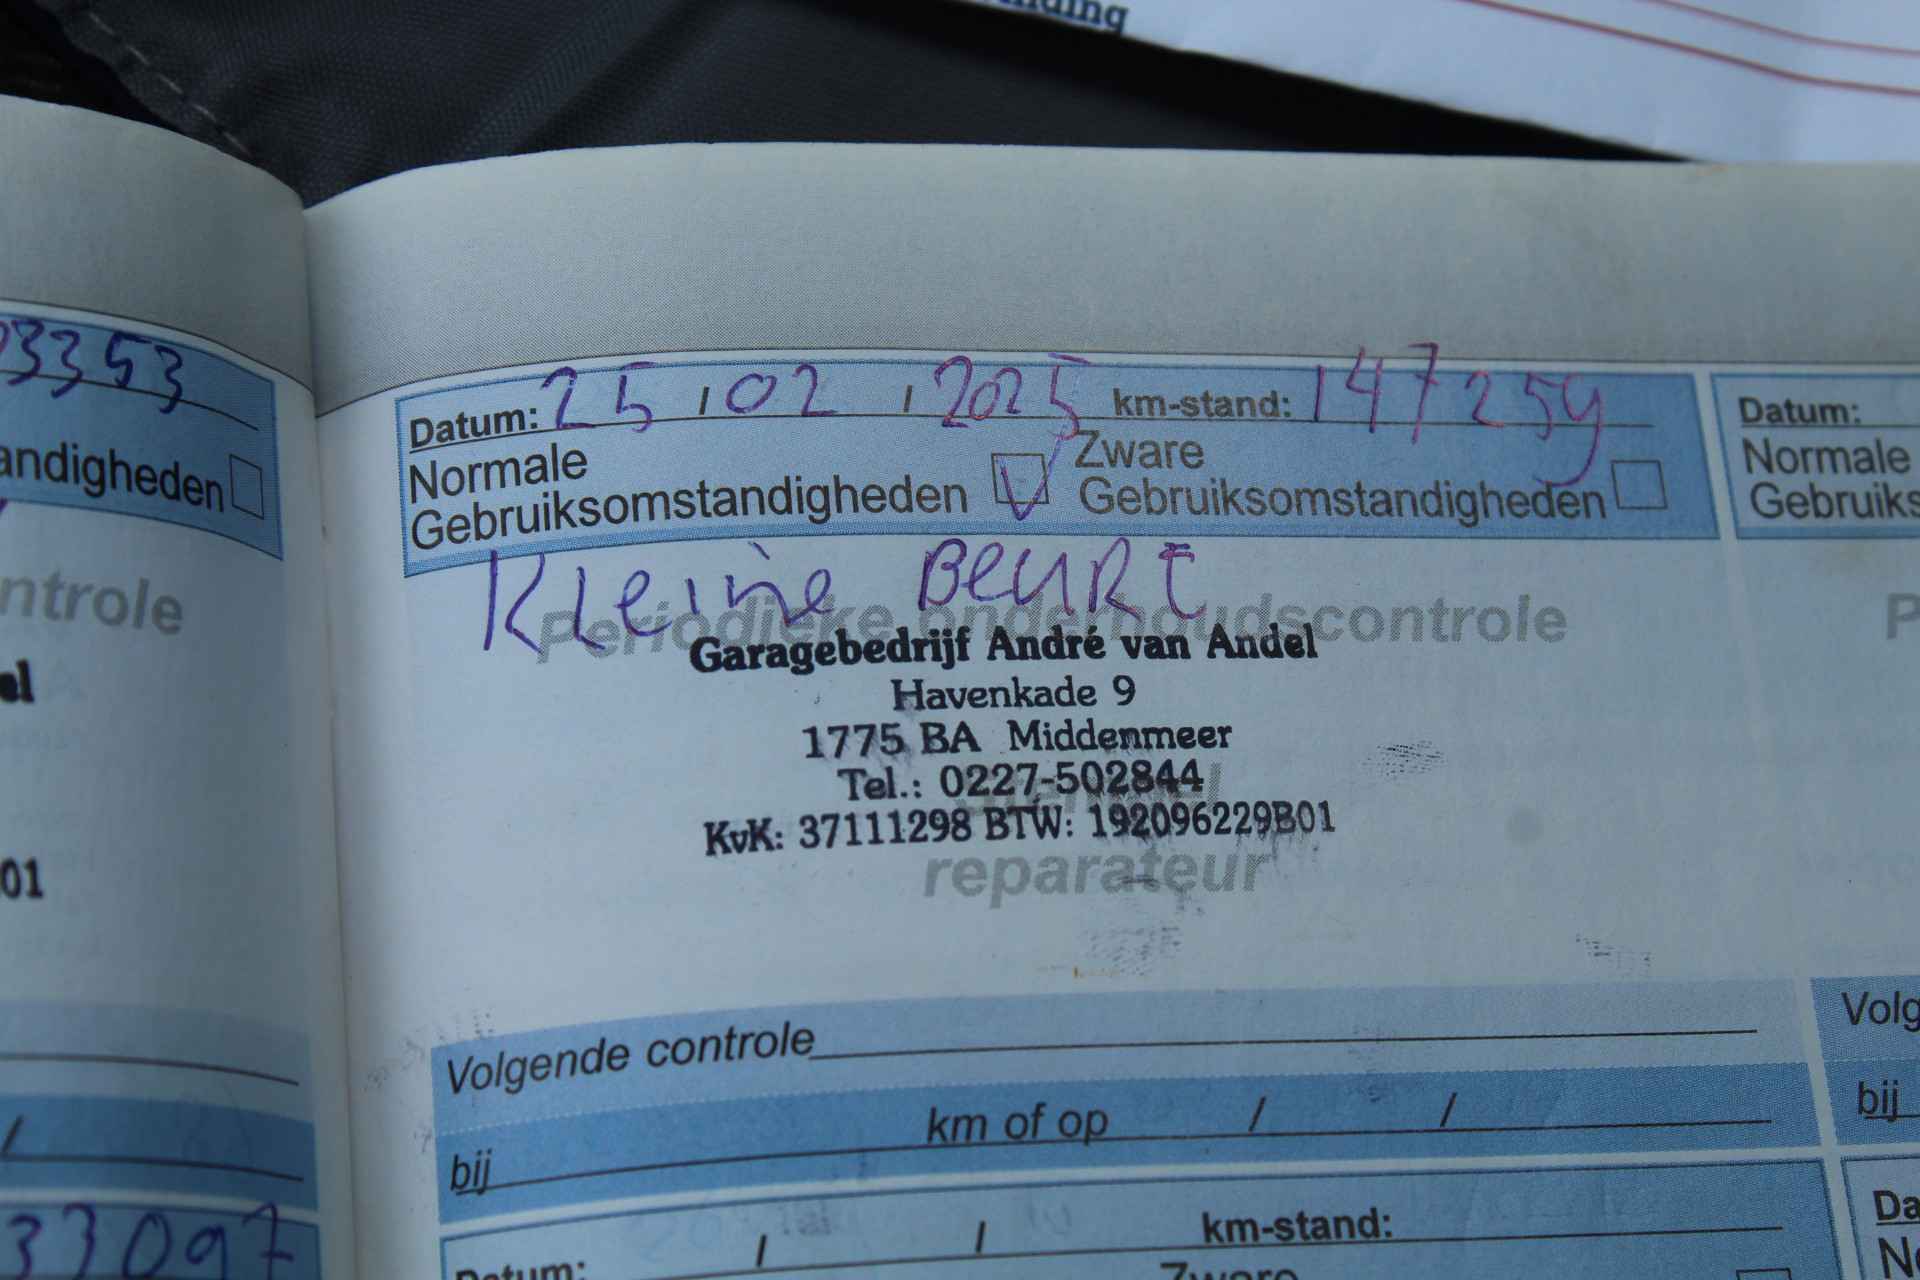 3353
andigheden
ntrole
el
01
/
33097
Datum: 25 / 02 / 2025 km-stand: 147259
Normale Gebruiksomstandigheden
Zware Gebruiksomstandigheden
Kleine Beurt
Periodieke onderhoudscontrole
Garagebedrijf André van Andel
Havenkade 9
1775 BA Middenmeer
Tel.: 0227-502844
KvK: 37111298 BTW: 192096229B01
reparateur
Volgende controle
bij km of op / /
Datum: / / km-stand:
Zware
Datum:
Normale
Gebruiks
P
Volg
bij
Da